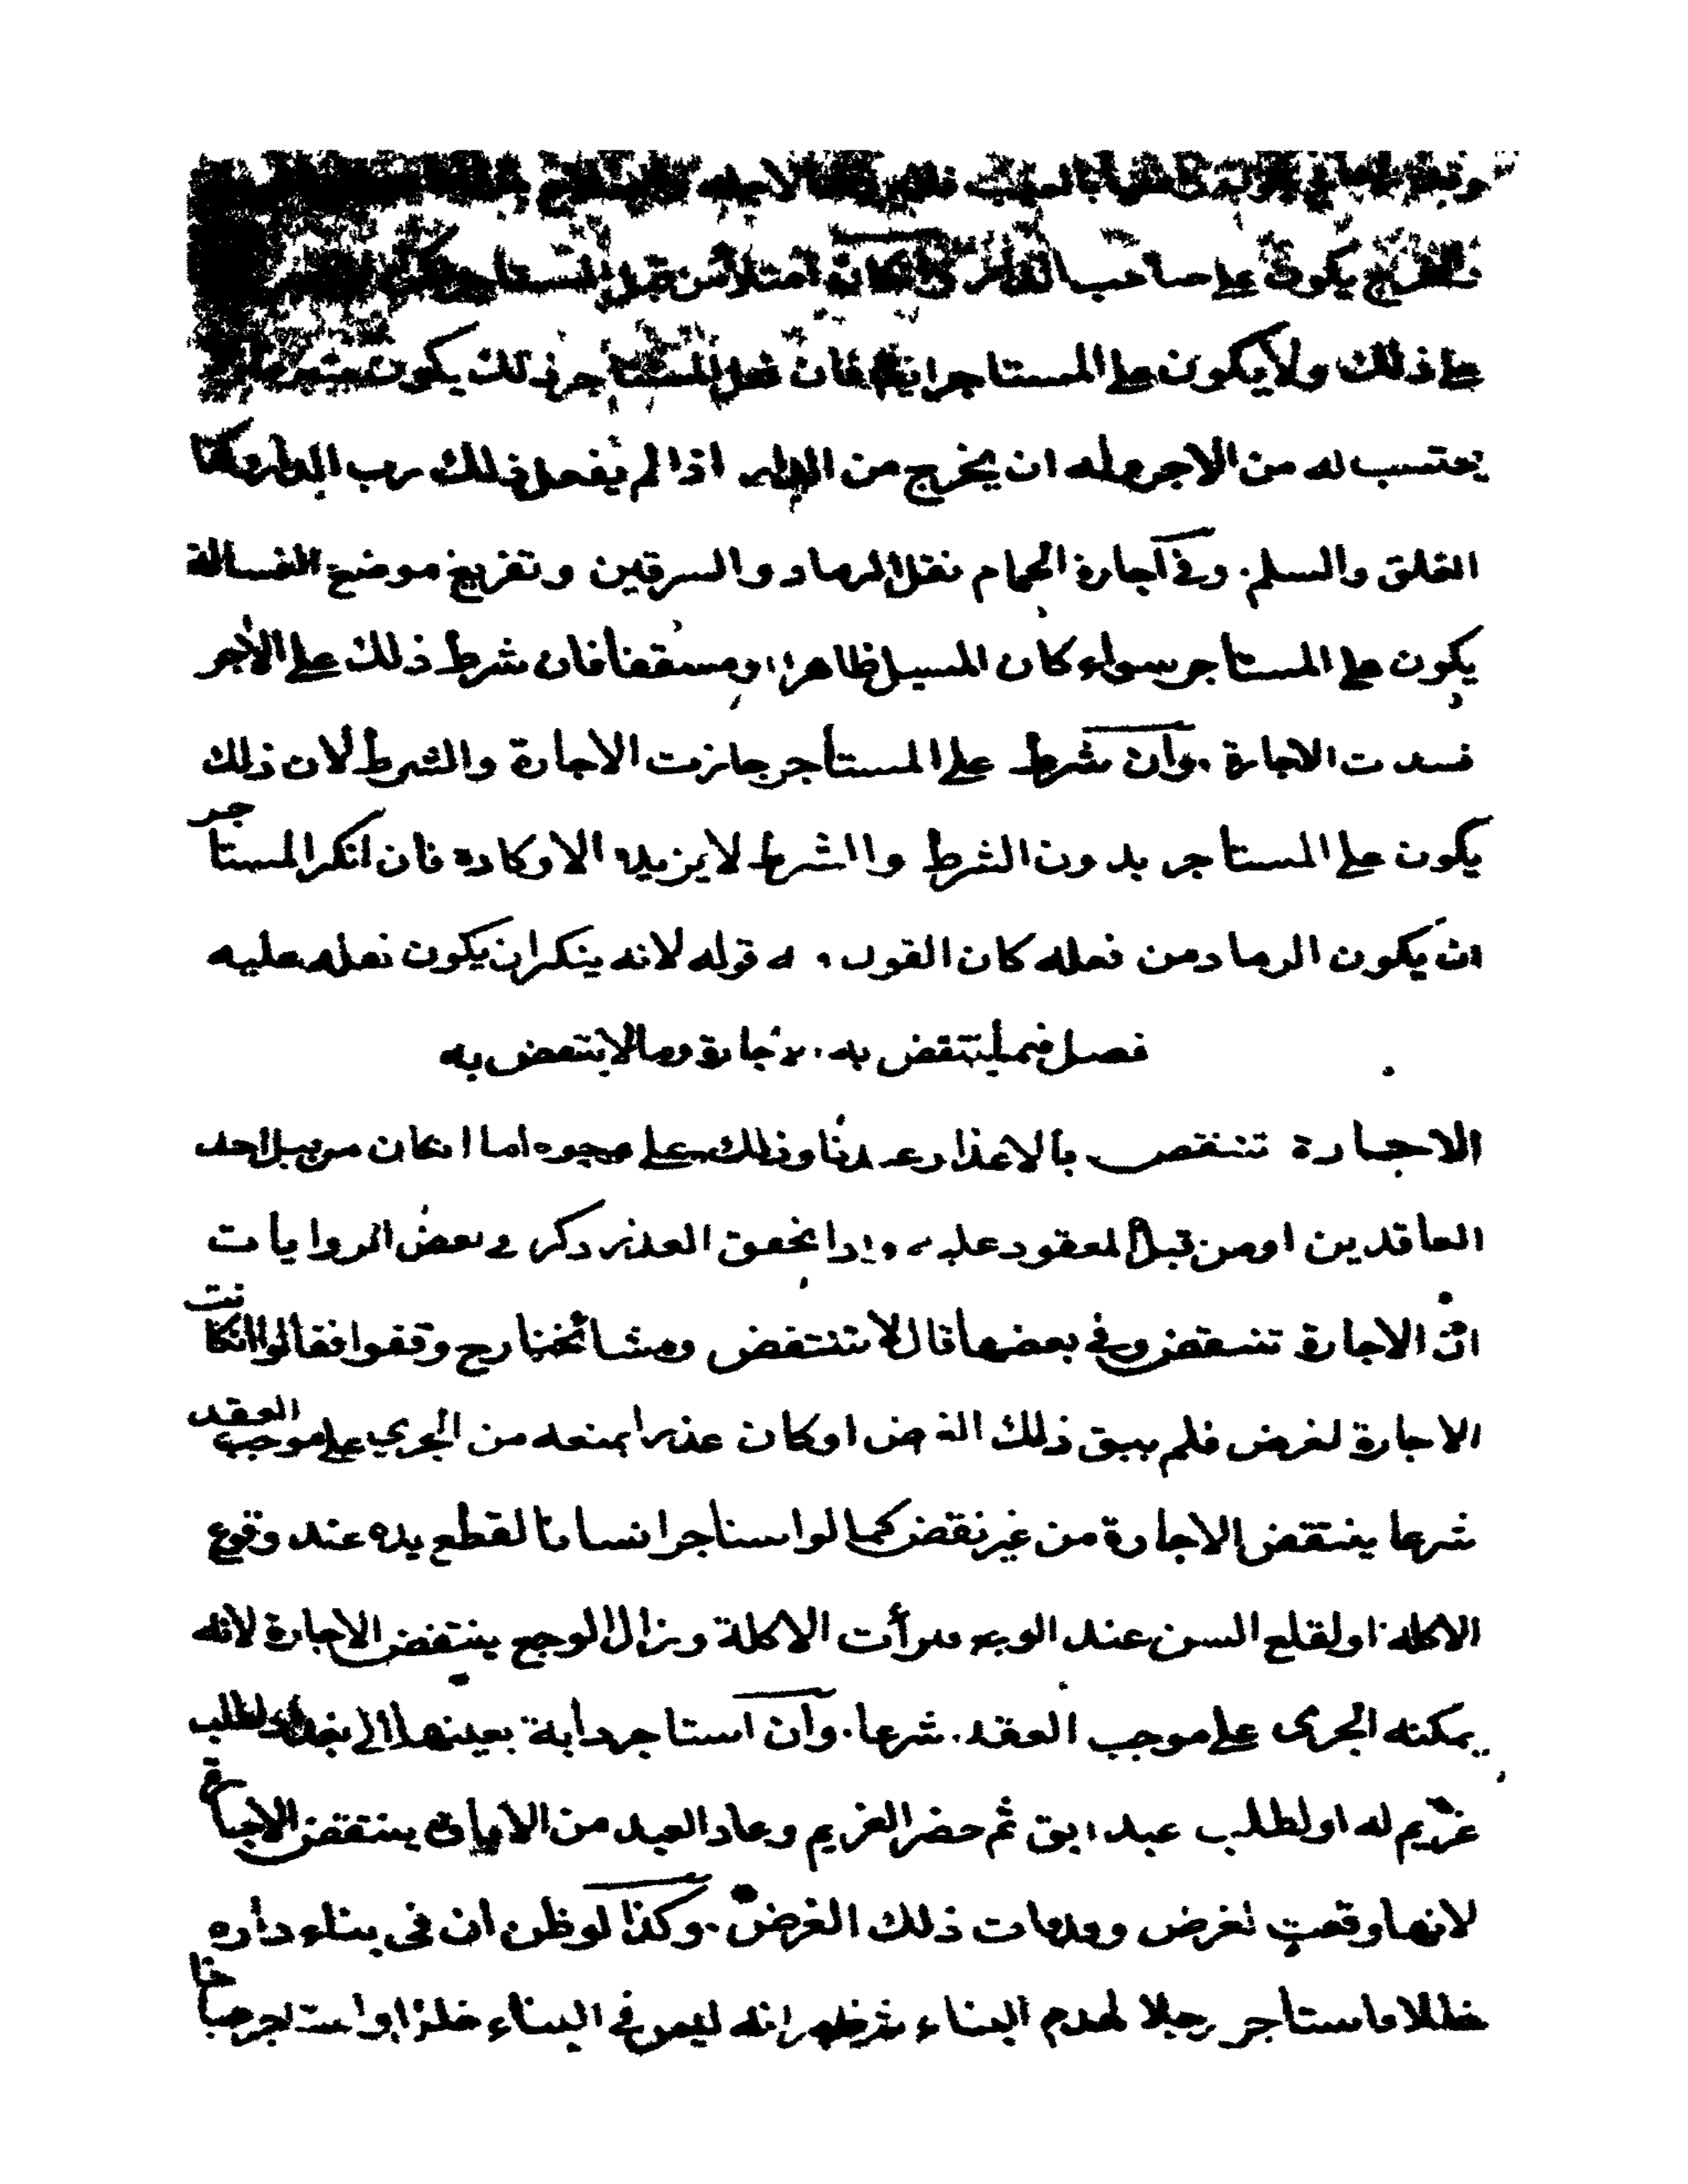 يكون على صاحب الدار وان كان امتلأ من قبل المستاجر
على ذلك ولا يكون على المستاجر ايضا فان فعل المستأجر ذلك يكون متبرعا لا
يحتسب له من الاجر وله ان يخرج من الدار اذا لم يفعل ذلك رب الدار وكذا
الغلق والسلم وفى اجارة الحمام نقل الرماد والسرقين وتفريغ موضع الغسالة
يكون على المستاجر سواء كان المسيل ظاهرا او مسقفا فان شرط ذلك على الاجر
فسدت الاجارة وان شرط على المستأجر جازت الاجارة والشرط لان ذلك
يكون على المستاجر بدون الشرط والشرط لا يزيده الا وكادة فان انكر المستاجر
ان يكون الرماد من فعله كان القول قوله لانه ينكر ان يكون نعله عليه
فصل فيما ينتقض به الاجارة وما لا ينتقض به
الاجارة تنتقص بالاعذار عندنا وذلك على وجوه اما ان كان من قبل احد
العاقدين او من قبل المعقود عليه واذا تحقق العذر ذكر فى بعض الروايات
ان الاجارة تنتقض وفى بعضها قال لا تنتقض ومشائخنا رح وقفوا فقالوا ان كانت
الاجارة لغرض فلم يبق ذلك الغرض او كان عذرا يمنعه من الجرى على موجب العقد
شرعا ينتقض الاجارة من غير نقض كما لو استاجر انسانا لقطع يده عند وقوع
الاكلة او لقلع السن عند الوجع فبرأت الاكلة وزال الوجع ينتقض الاجارة لانه
يمكنه الجرى على موجب العقد شرعا وان استاجر دابة بعينها الى بغداد لطلب
غريم له او لطلب عبد ابق ثم حضر الغريم وعاد العبد من الاباق ينتقض الاجارة
لانها وقعت لغرض وقد فات ذلك الغرض وكذا لو ظن ان فى بناء داره
خللا فاستأجر رجلا لهدم البناء ثم ظهر انه ليس فى البناء خلل او استاجر خبا